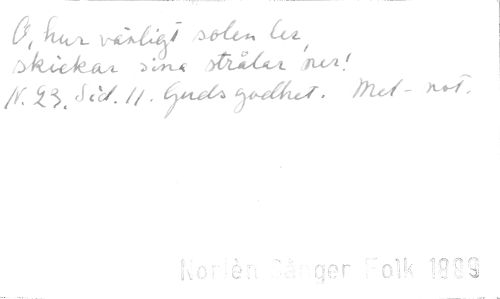 O, hur vänligt solen ler,
skickar sina strålar ner!
N. 23, Sid. 11. Guds godhet. Mel-not.
Norlén Sånger Folk 1889